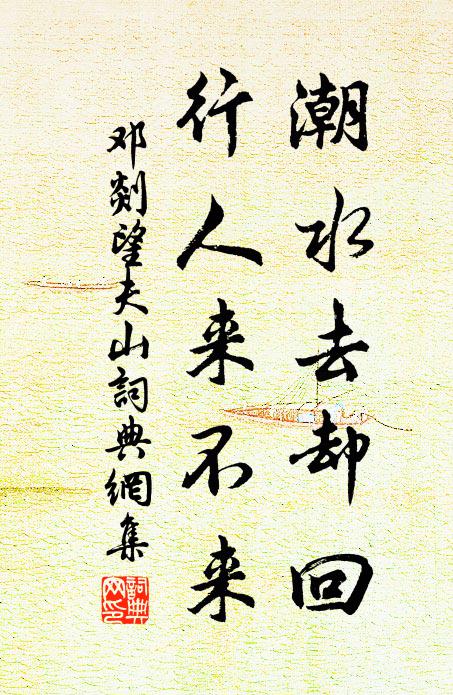 潮水去却回
行人来不来
邓剡望夫山詞典網集
詞典